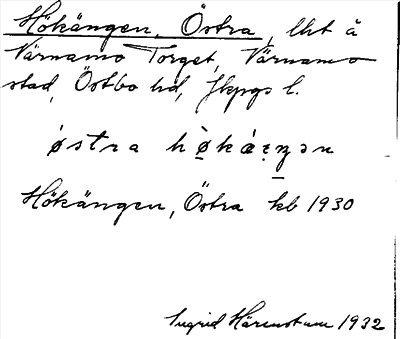 Hökängen, Östra, lht å
Värnamo Torget, Värnamo
stad, Östbo hd, Jkpgs l.
östra hø̀kæŋən
Hökängen, Östra kb 1930
Ingrid Härenstam 1932